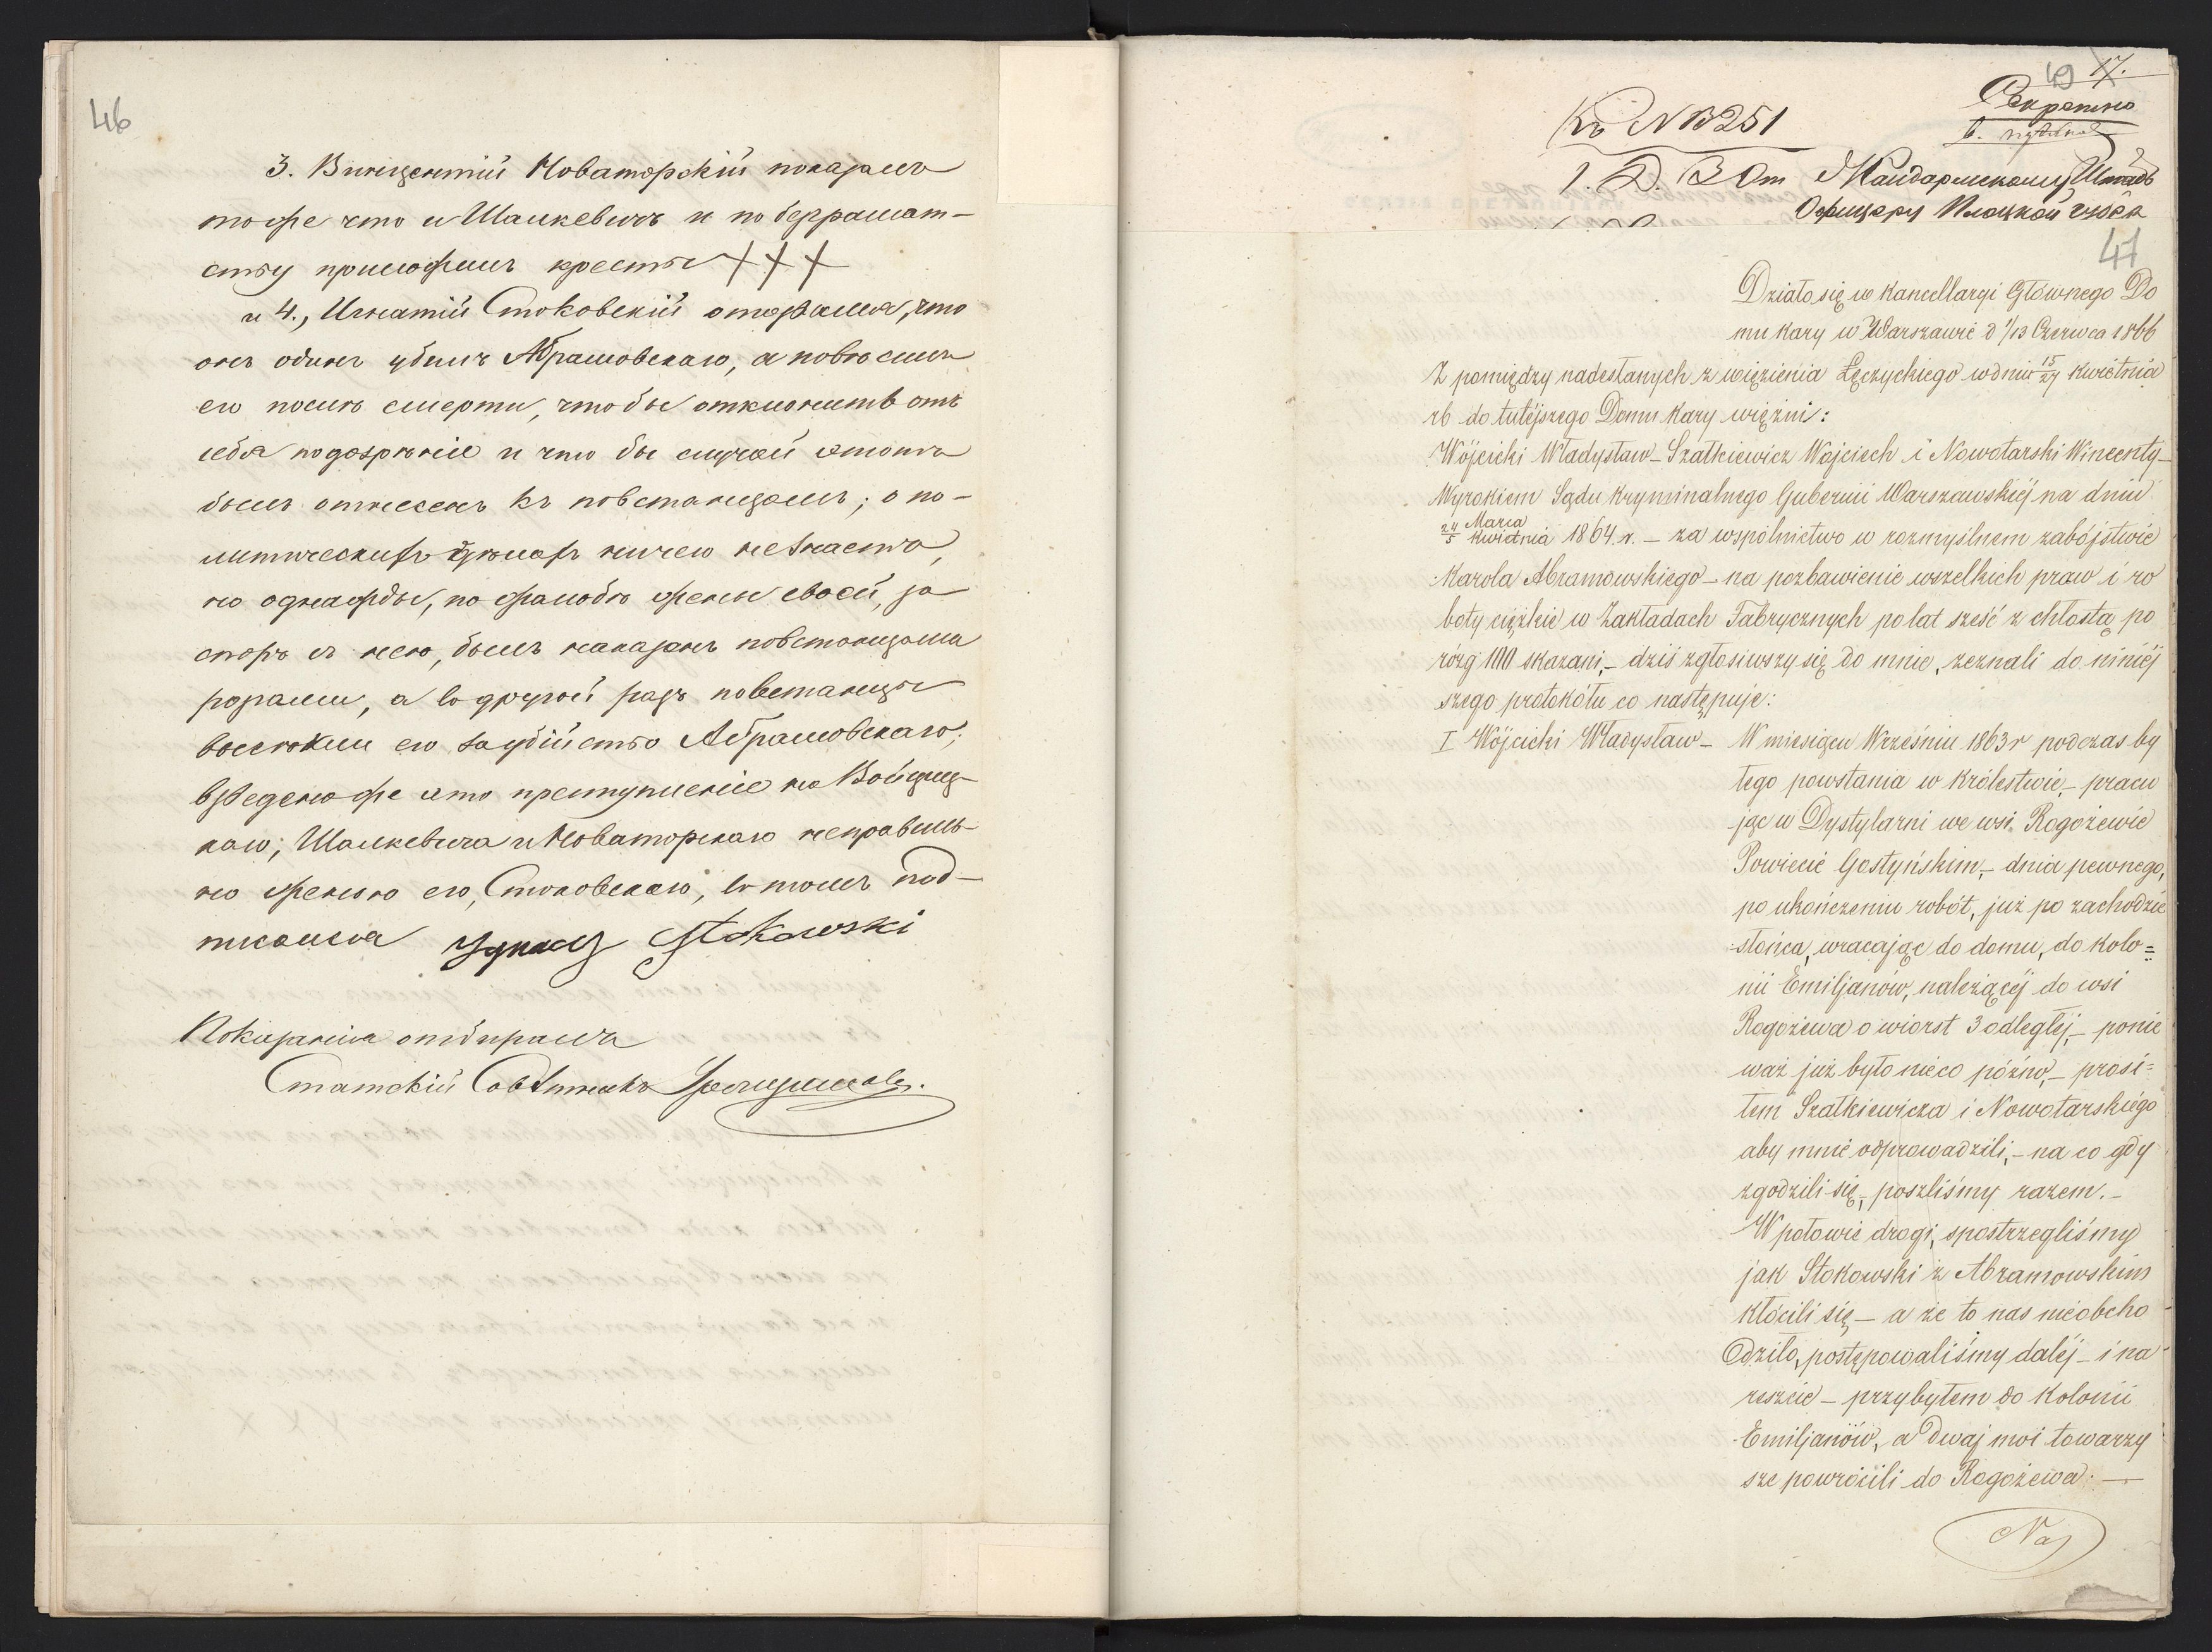 46
3. Винцентій Новаторскій показалъ
тоже что и Шалкевичъ и по безграмот-
ству приложилъ кресты +++
и 4., Игнатій Стоковскій отозвался, что
онъ одинъ убилъ Абрамовскаго, а повѣсилъ
его послѣ смерти, чтобы отклонить отъ
себя подозрѣніе и что бы случай этотъ
былъ отнесенъ къ повстанцамъ; о по-
литическихъ дѣлахъ ничего не знаетъ,
но однажды, по жалобѣ жены своей, за
споръ съ нею, былъ наказанъ повстанцами
розгами, а въ другой разъ повстанцы
высѣкли его за убійство Абрамовскаго;
взведено же это преступленіе на Войциц-
каго, Шалкевича и Новаторскаго неправиль-
но женою его, Стоковскаго, въ томъ под-
писался Ignacy Stokowski
Показанія отбиралъ
Статскій Совѣтникъ
49 17.
Секретно
Къ № 251
1. Д. 3 От Жандармскому Штабъ
Офицеру Плоцкой
47
Działo się w Kancellaryi Głównego Do
mu Kary w Warszawie d 1/13 Czerwca 1866
Z pomiędzy nadesłanych z więzienia Łęczyckiego w dniu 15/27 Kwietnia
rb do tutéjszego Domu Kary więźni:
Wójcicki Władysław – Szatkiewicz Wojciech i Nowotarski Wincenty –
Wyrokiem Sądu Kryminalnego Gubernii Warszawskiéj na dniu
24 Marca
5 Kwietnia 1864 r. – za wspólnictwo w rozmyślnem zabójstwie
Karola Abramowskiego – na pozbawienie wszelkich praw i ro
boty ciężkie w Zakładach Fabrycznych po lat sześć z chłostą po
rózg 100 skazani, – dziś zgłosiwszy się do mnie, zeznali do niniéj
szego protokółu co następuje:
I Wójcicki Władysław – W miesiącu Wrześniu 1863 r podczas by
łego powstania w Królestwie, – pracu
jąc w Dystylarni we wsi Rogożewie
Powiecie Gostyńskim, – dnia pewnego,
po ukończeniu robót, już po zachodzie
słońca, wracając do domu, do kolo=
nii Emiljanów, należącéj do wsi
Rogożewa o wiorst 3 odległéj, – ponie
waż już było nieco późno, – prosi=
łem Szatkiewicza i Nowotarskiego
aby mnie odprowadzili, – na co gdy
zgodzili się, poszliśmy razem. –
W połowie drogi, spostrzegliśmy
jak Stokowski z Abramowskim
kłócili się – a że to nas nieobcho
dziło, postępowaliśmy daléj – i na
reszcie – przybyłem do Kolonii
Emiljanów, a dwaj moi towarzy
sze powrócili do Rogożewa. —
Na